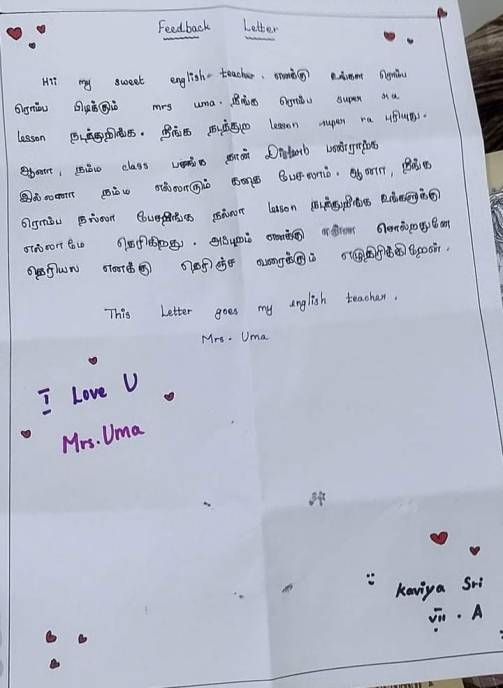 Feedback Letter
Hii my sweet english teacher. எனக்கு உங்கள ரொம்ப
ரொம்ப பிடிக்கும் mrs uma. நீங்க ரொம்ப super ஆ
lesson நடத்துறிங்க. நீங்க நடத்துற lesson super ra புரியுது.
ஆனா, நம்ம class பசங்க தான் Disturb பண்றாங்க
இல்லனா நம்ம எல்லாரும் கதை பேசலாம். ஆனா, நீங்க
ரொம்ப நல்லா பேசுறிங்க நல்லா lasson நடத்துறிங்க உங்களுக்கு
எல்லாமே தெரிகிறது. அப்புறம் எனக்கு என்ன சொல்றதுனே
தெரியல எனக்கு தெரிஞ்ச வரைக்கும் எழுதிருக்கிறேன்.
This Letter goes my english teacher.
Mrs. Uma
I Love U
Mrs. Uma
Kaviya Sri
VII . A